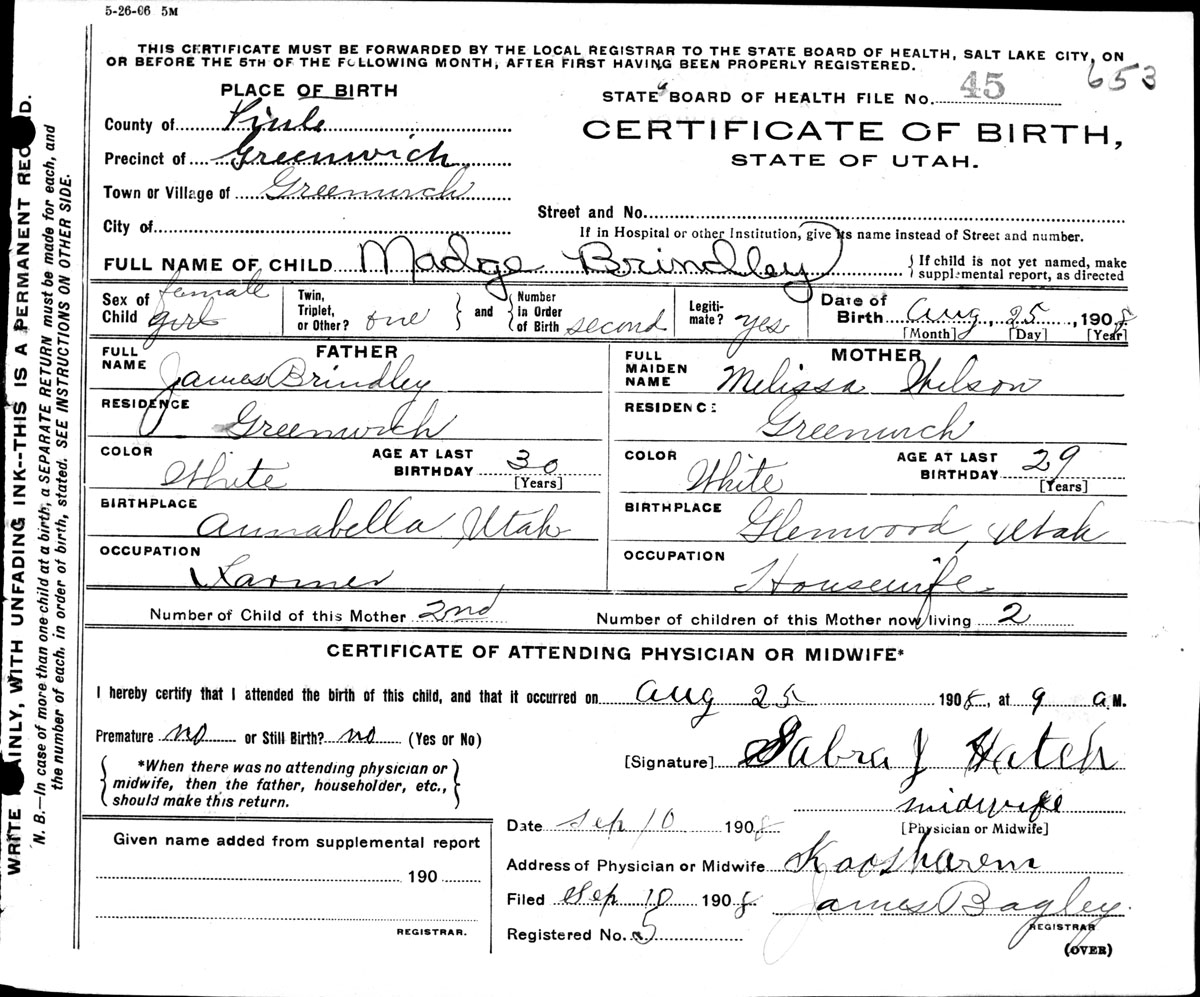 5-26-06 5M
THIS CERTIFICATE MUST BE FORWARDED BY THE LOCAL REGISTRAR TO THE STATE BOARD OF HEALTH, SALT LAKE CITY, ON
OR BEFORE THE 5TH OF THE FOLLOWING MONTH, AFTER FIRST HAVING BEEN PROPERLY REGISTERED.
653
PLACE OF BIRTH
STATE BOARD OF HEALTH FILE No. 45
County of Piute
CERTIFICATE OF BIRTH,
Precinct of Greenwich
STATE OF UTAH.
Town or Village of Greenwich
Street and No.
City of
If in Hospital or other Institution, give its name instead of Street and number.
FULL NAME OF CHILD Madge Brindley
If child is not yet named, make
supplemental report, as directed
Sex of Child female girl
Twin, Triplet, or Other? one and Number In Order of Birth second
Legitimate? yes
Date of Birth Aug, 25, 1908
[Month] [Day] [Year]
FATHER
FULL NAME James Brindley
RESIDENCE Greenwich
COLOR White AGE AT LAST BIRTHDAY 30 [Years]
BIRTHPLACE Annabella Utah
OCCUPATION Farmer
MOTHER
FULL MAIDEN NAME Melissa Wilson
RESIDENCE Greenwich
COLOR White AGE AT LAST BIRTHDAY 29 [Years]
BIRTHPLACE Glenwood, Utah
OCCUPATION Housewife
Number of Child of this Mother 2nd Number of children of this Mother now living 2
CERTIFICATE OF ATTENDING PHYSICIAN OR MIDWIFE*
I hereby certify that I attended the birth of this child, and that it occurred on Aug 25 1908, at 9 a M.
Premature no or Still Birth? no (Yes or No)
[Signature] Sabra J Hatch
*When there was no attending physician or
midwife, then the father, householder, etc.,
should make this return.
midwife
[Physician or Midwife]
Date Sep 10 1908
Given name added from supplemental report
190
REGISTRAR.
Address of Physician or Midwife Koosharem
Filed Sep 10 1908 James Bagley
REGISTRAR
Registered No. 5
(OVER)
WRITE PLAINLY, WITH UNFADING INK--THIS IS A PERMANENT RECORD.
N. B.—In case of more than one child at a birth, a SEPARATE RETURN must be made for each, and
the number of each, in order of birth, stated. SEE INSTRUCTIONS ON OTHER SIDE.